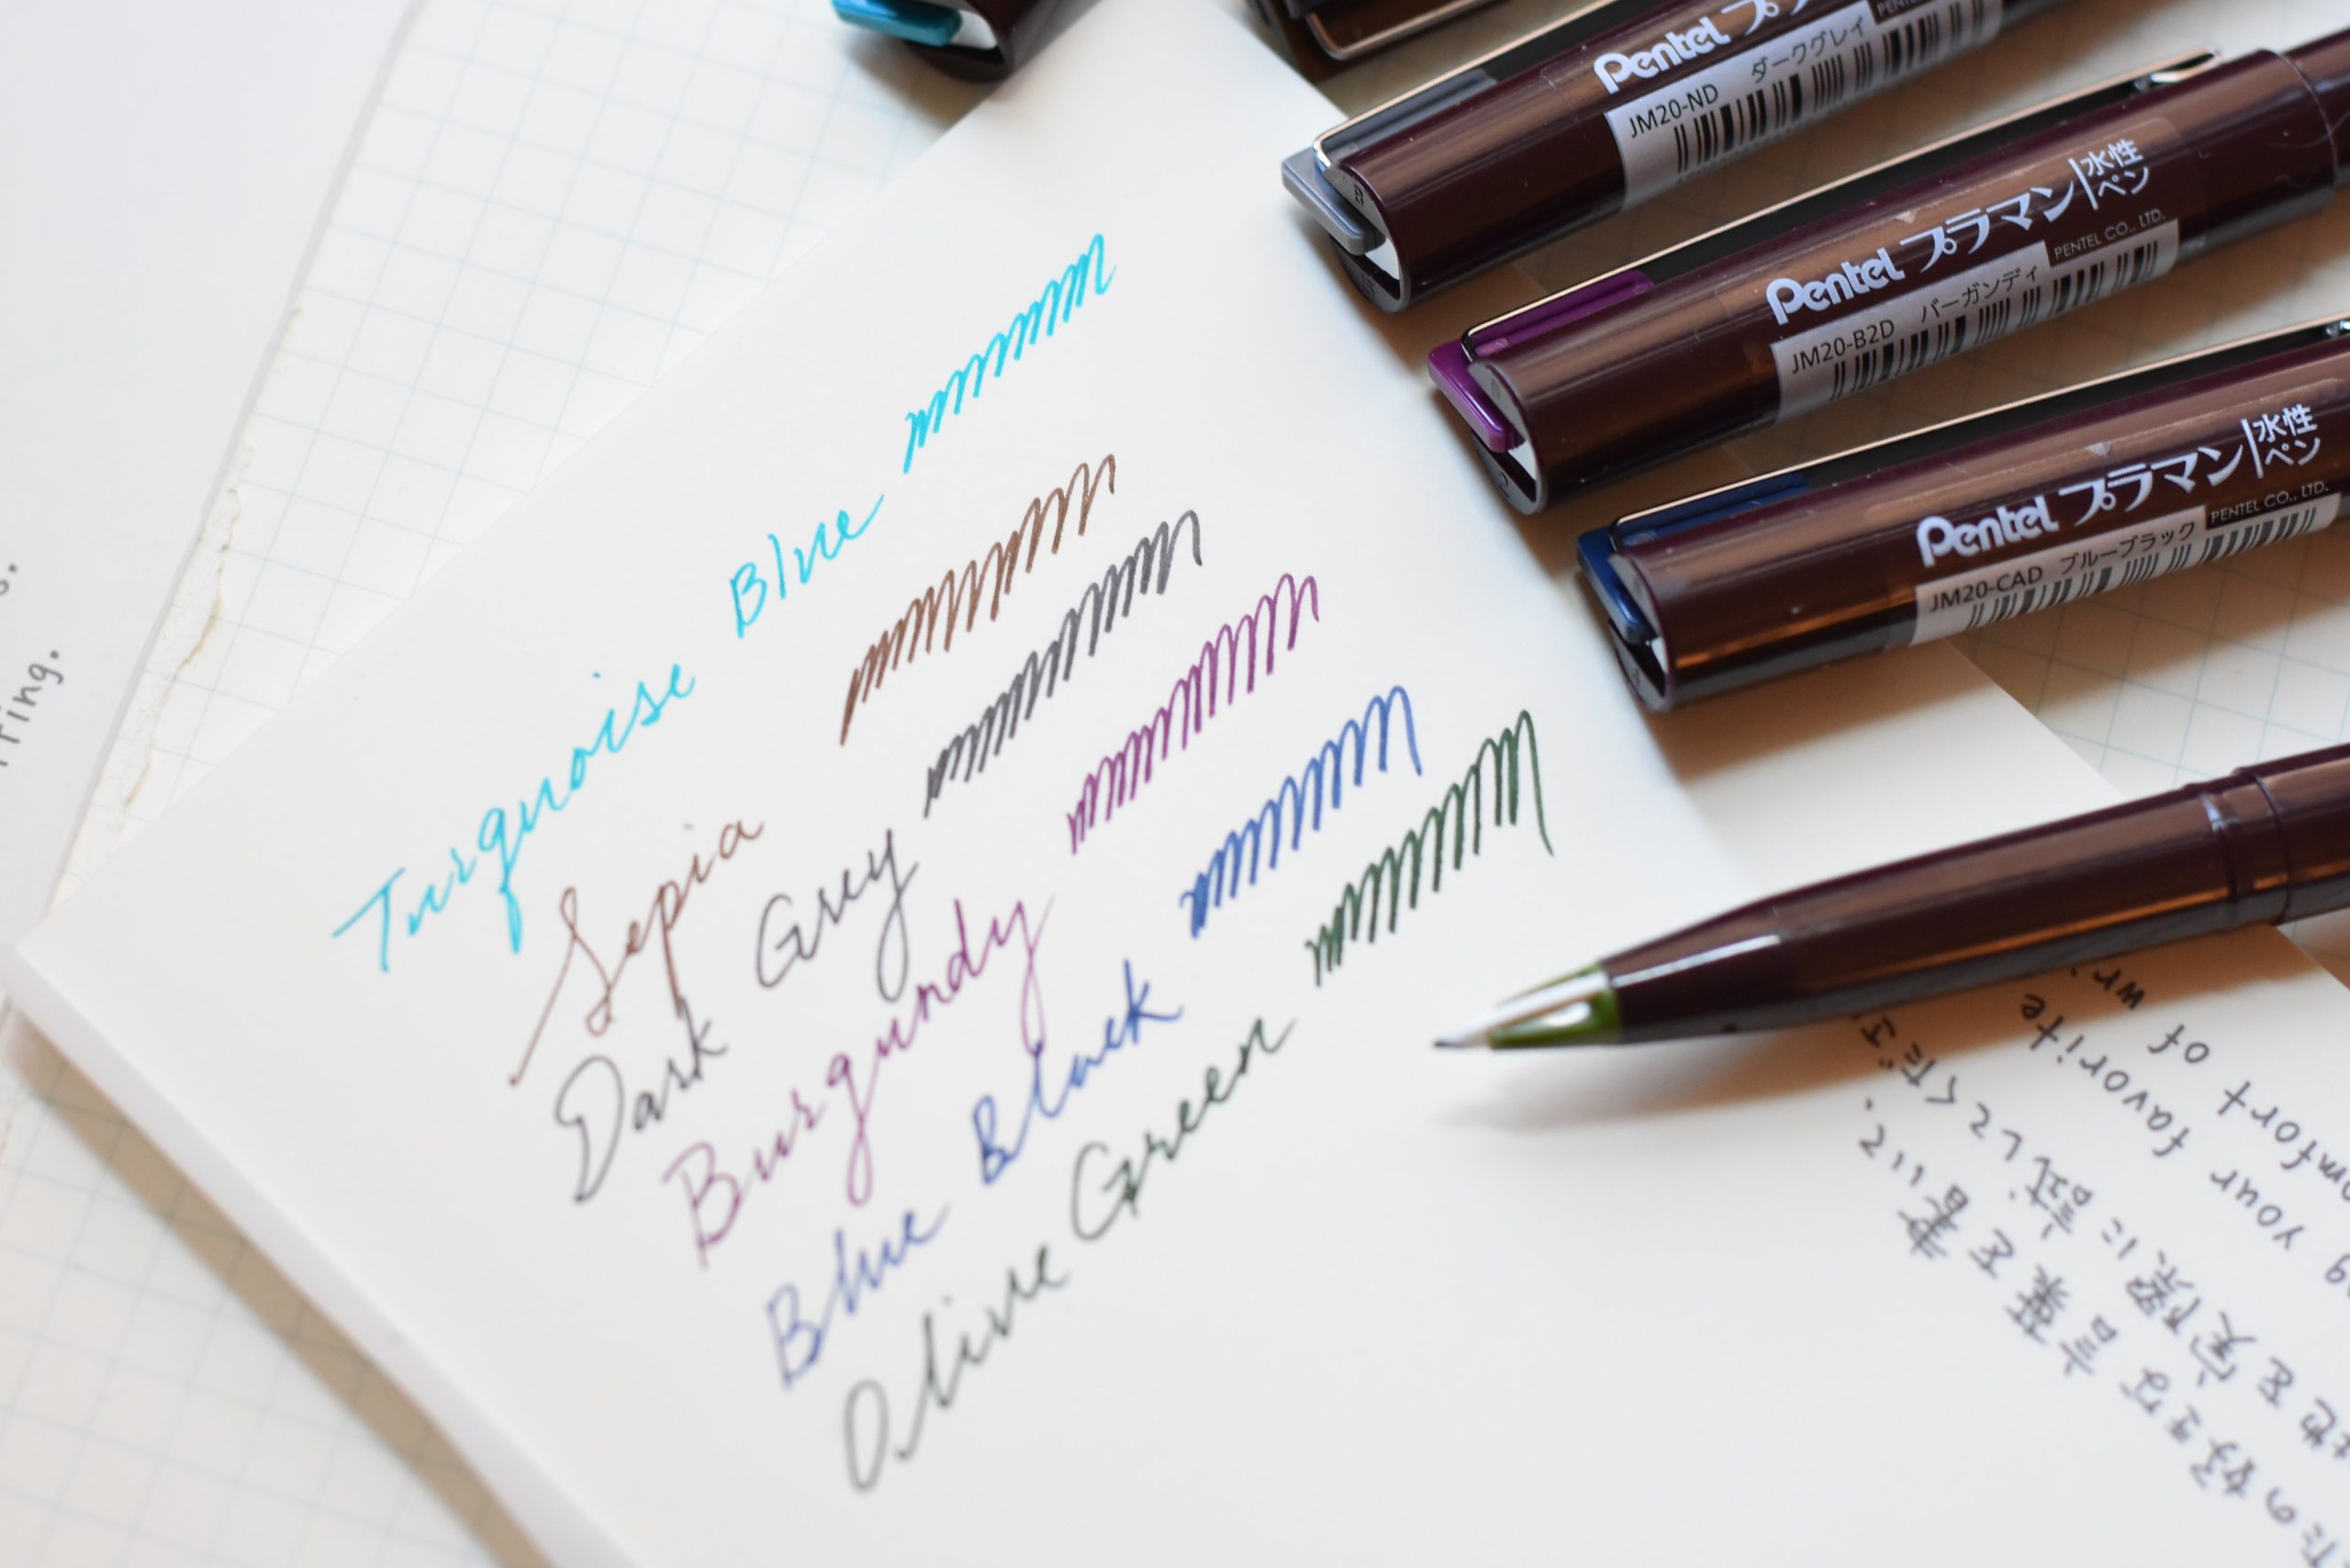 Turquoise Blue
Sepia
Dark Grey
Burgundy
Blue Black
Olive Green
Pentel
JM20-ND ダークグレイ
Pentel プラマン 水性ペン
PENTEL CO., LTD.
JM20-B2D バーガンディ
Pentel プラマン 水性ペン
PENTEL CO., LTD.
JM20-CAD ブルーブラック
your favorite
of
好きな言葉を書いて